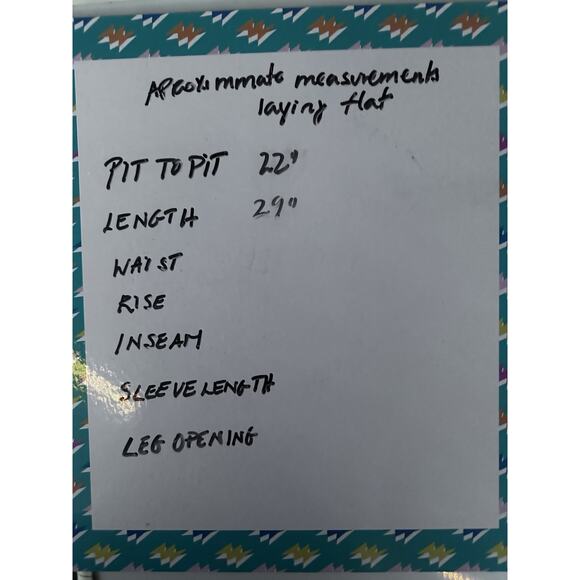 Aproximmate measurements
laying flat
PIT TO PIT 22"
LENGTH 29"
WAIST
RISE
INSEAM
SLEEVE LENGTH
LEG OPENING